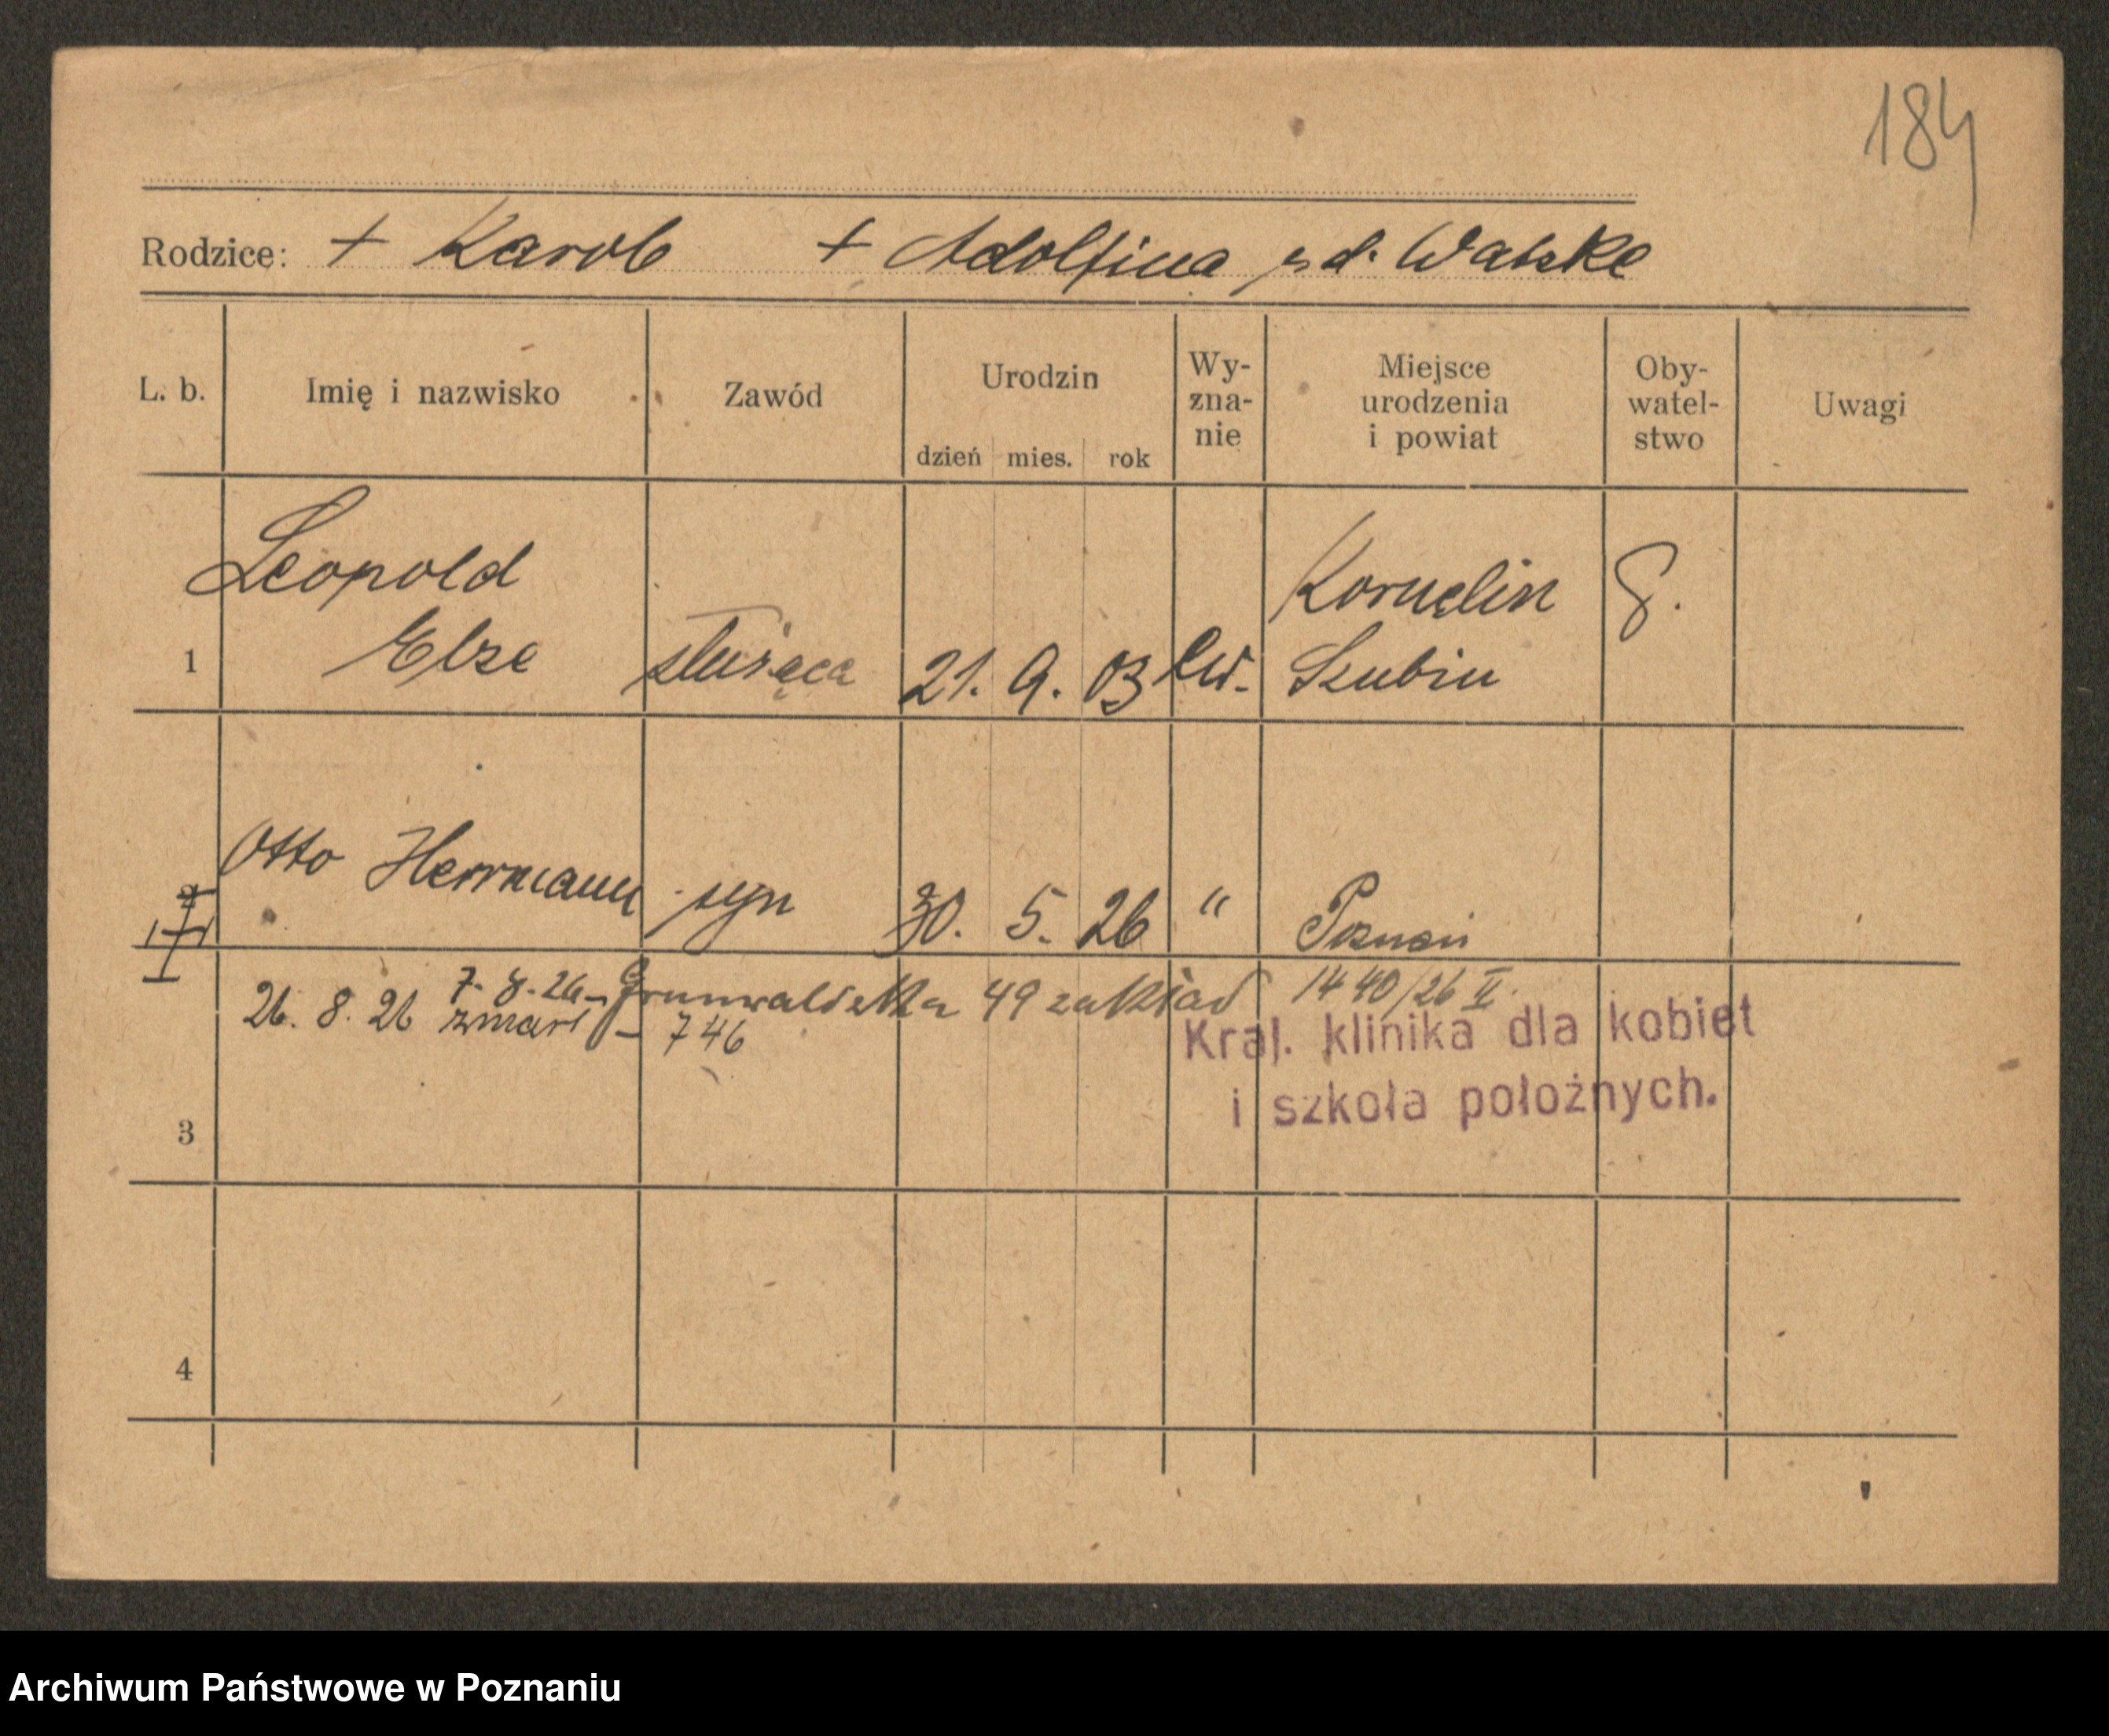 184
Rodzice: + Karol + Adolfina z d. Watzke
L. b. Imię i nazwisko Zawód Urodzin dzień mies. rok Wy-zna-nie Miejsce urodzenia i powiat Oby-watel-stwo Uwagi
Leopold Kornelin
1 Elze służąca 21. 9. 03 ew. Szubin
Otto Herrmann syn 30. 5. 26 " Poznań
7. 8. 26 - Grunwaldzka 49 zakład 1440/26 II.
26. 8. 26 zmarł - 746
Kraj. klinika dla kobiet
i szkoła położnych.
3
4
Archiwum Państwowe w Poznaniu